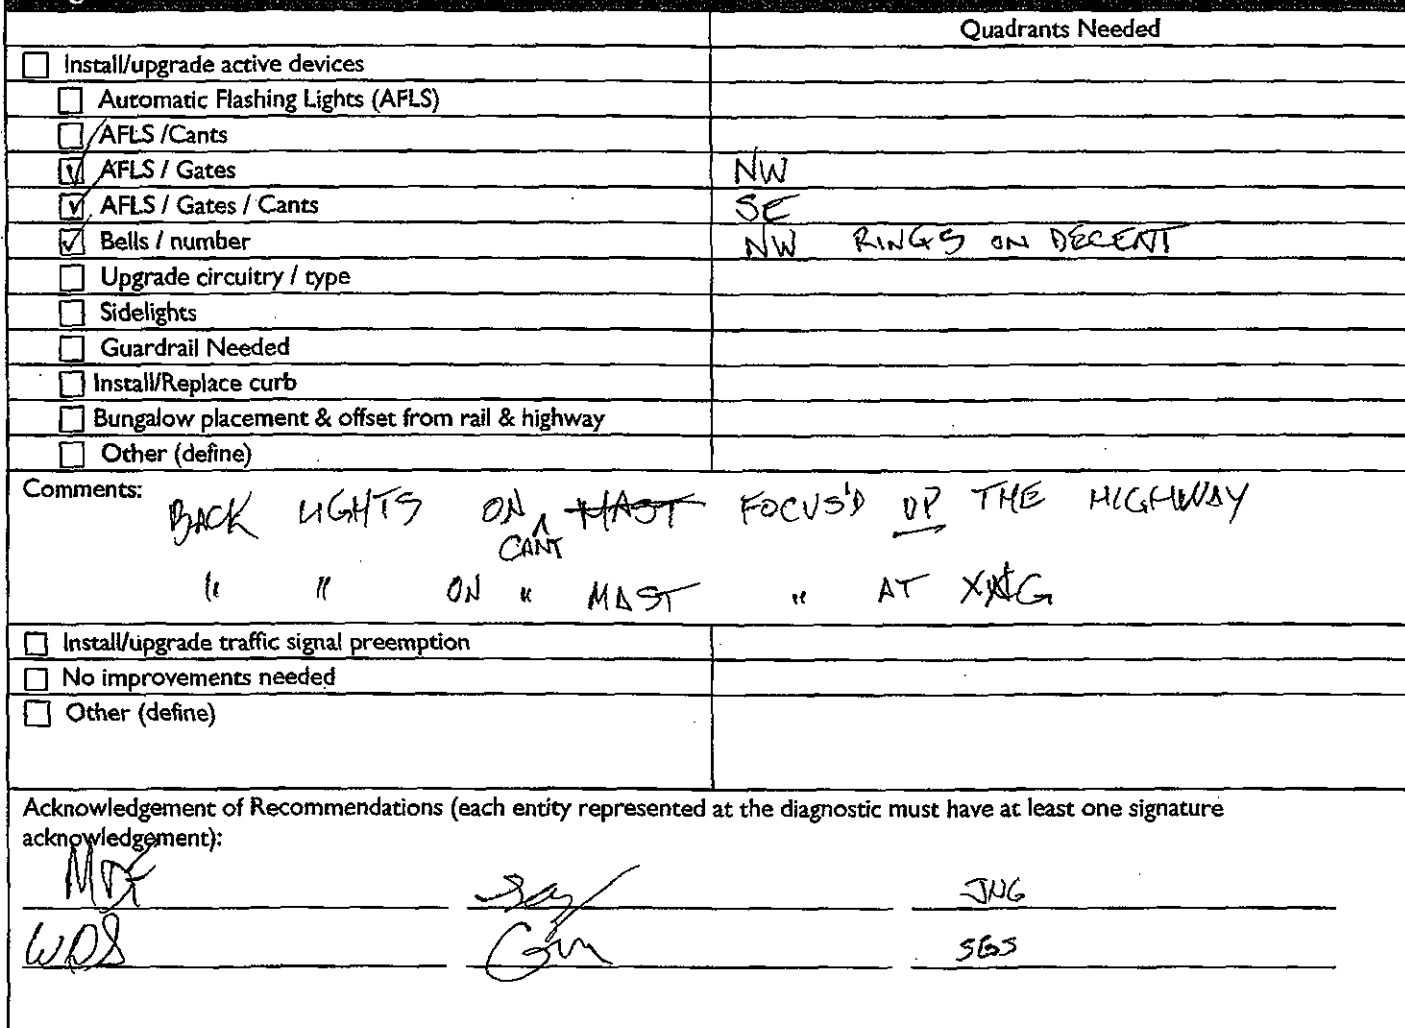 Quadrants Needed
Install/upgrade active devices
Automatic Flashing Lights (AFLS)
AFLS /Cants
AFLS / Gates NW
AFLS / Gates / Cants SE
Bells / number NW RINGS ON DECENT
Upgrade circuitry / type
Sidelights
Guardrail Needed
Install/Replace curb
Bungalow placement & offset from rail & highway
Other (define)
Comments:
BACK LIGHTS ON CANT MAST FOCUS'D UP THE HIGHWAY
" " ON " MAST " AT
Install/upgrade traffic signal preemption
No improvements needed
Other (define)
Acknowledgement of Recommendations (each entity represented at the diagnostic must have at least one signature
acknowledgement):
JNG
WDS
SGS